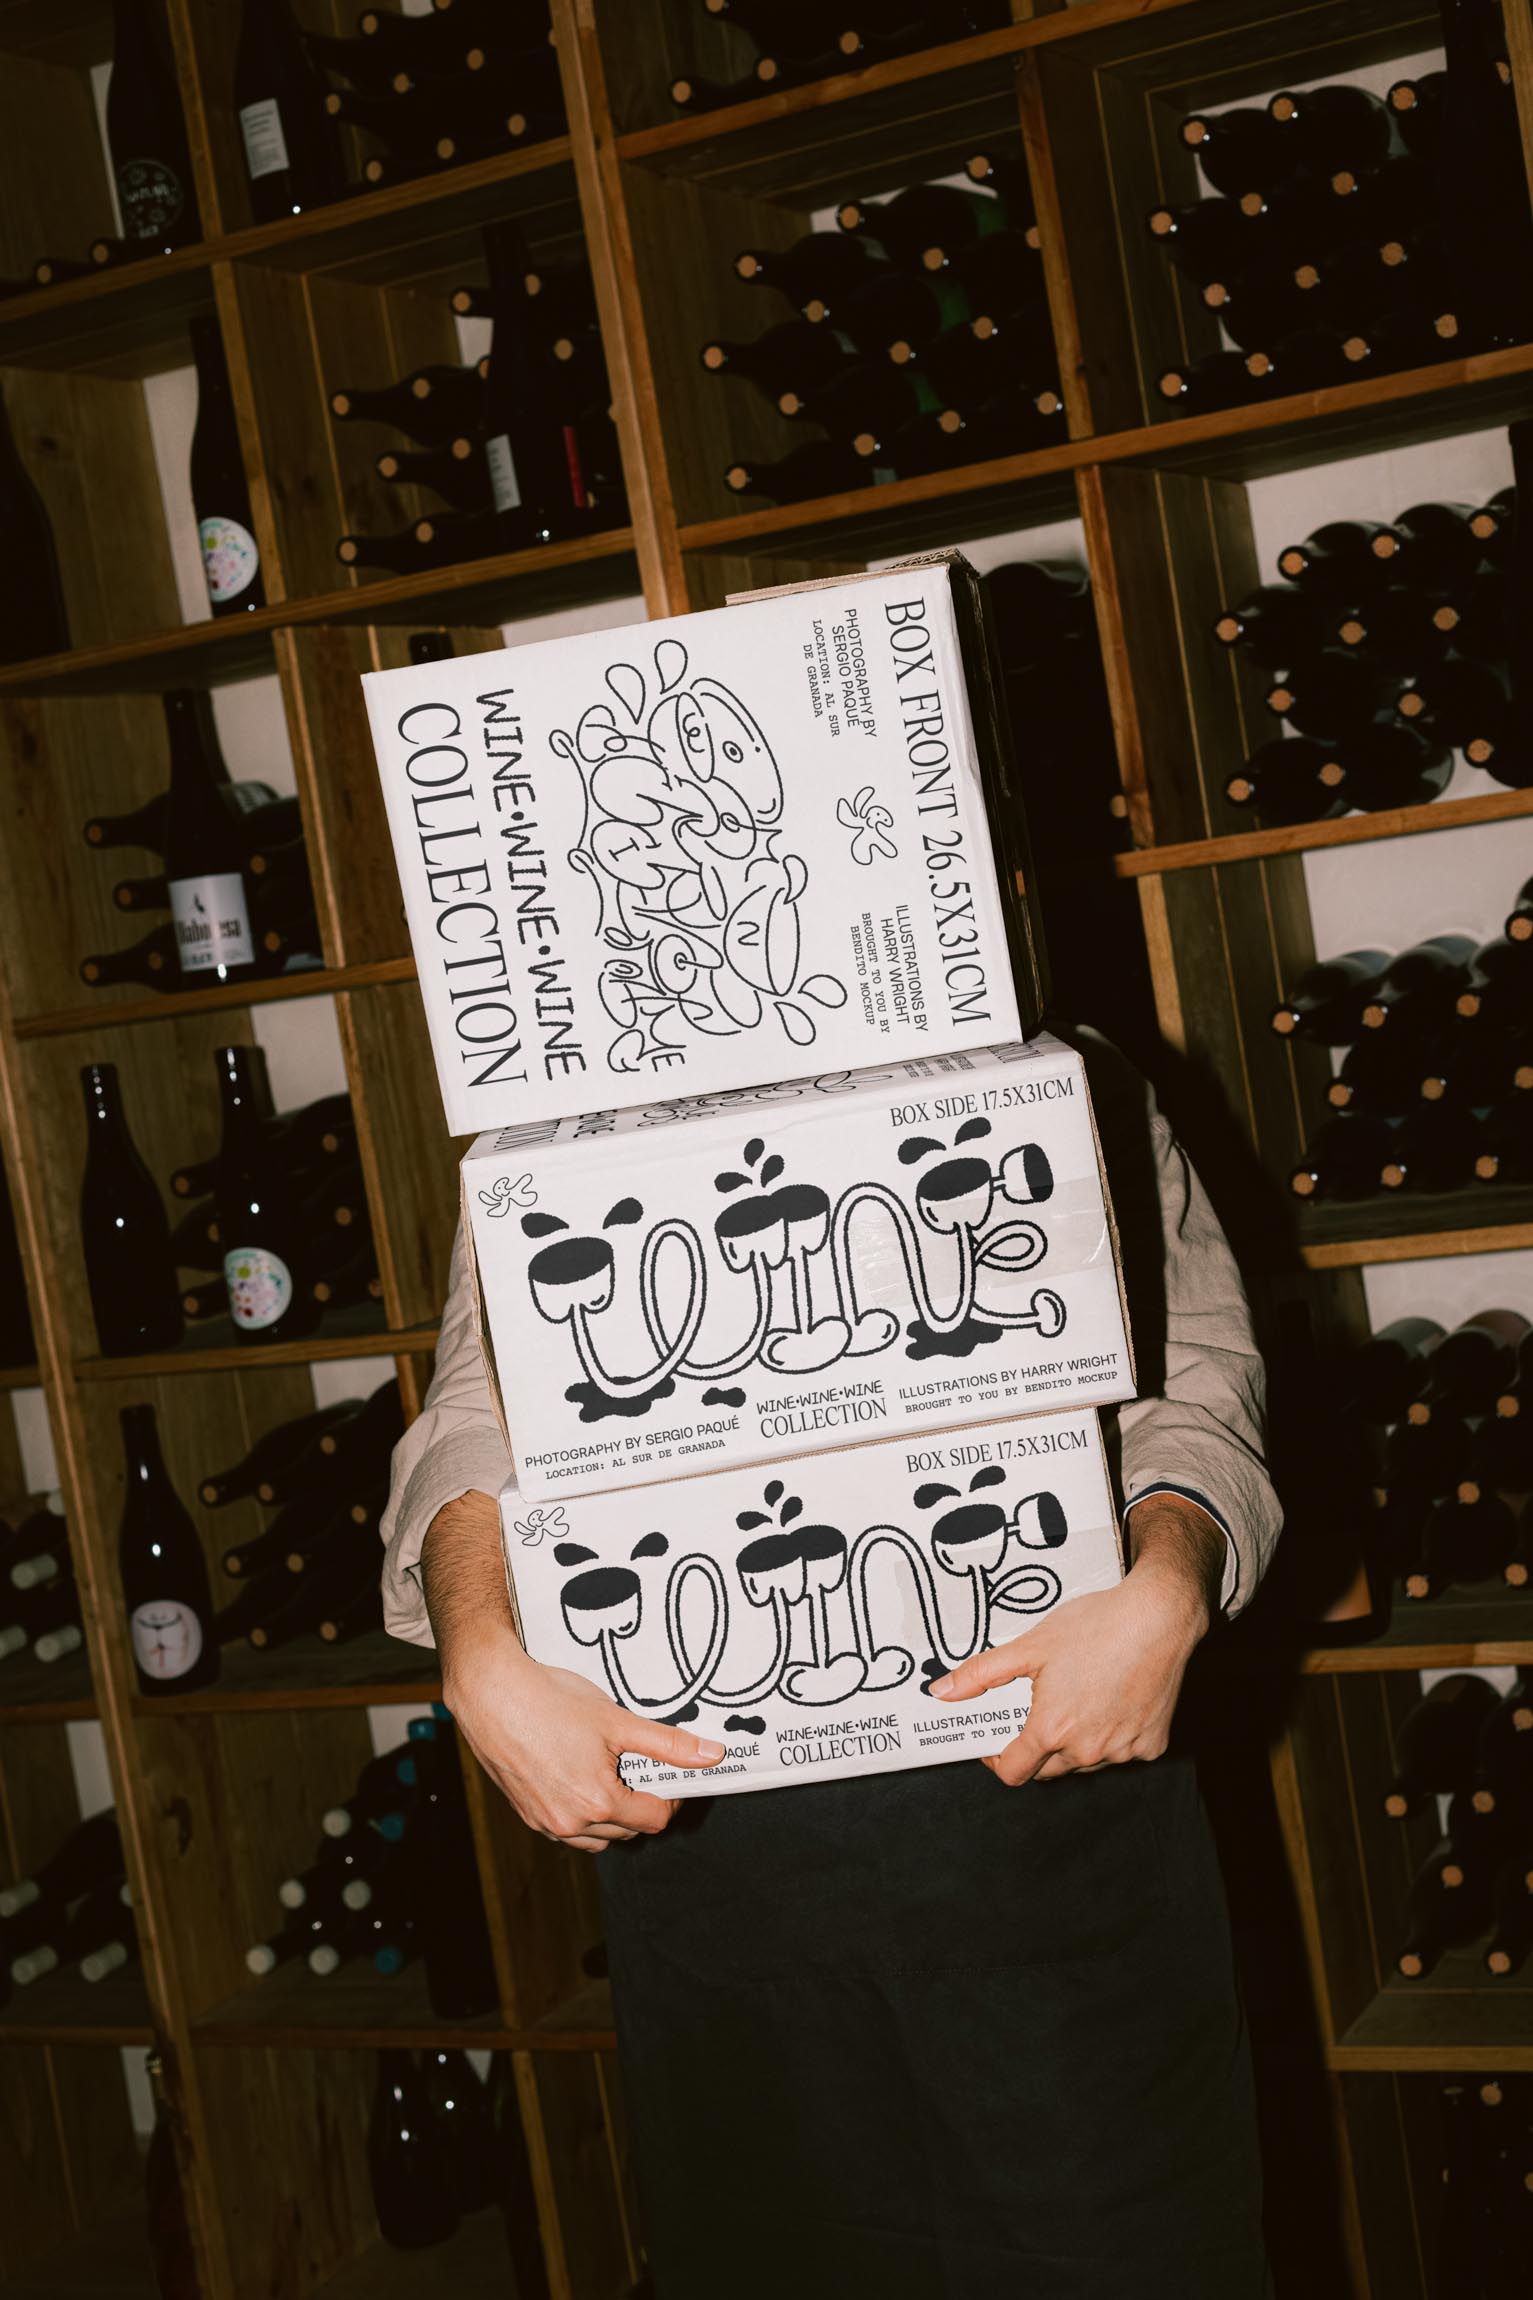 BOX FRONT 26.5X31CM
PHOTOGRAPHY BY
SERGIO PAQUÉ
LOCATION: AL SUR
DE GRANADA
ILLUSTRATIONS BY
HARRY WRIGHT
BROUGHT TO YOU BY
BENDITO MOCKUP
WINE•WINE•WINE
COLLECTION
BOX SIDE 17.5X31CM
WINE
PHOTOGRAPHY BY SERGIO PAQUÉ
LOCATION: AL SUR DE GRANADA
WINE•WINE•WINE
COLLECTION
ILLUSTRATIONS BY HARRY WRIGHT
BROUGHT TO YOU BY BENDITO MOCKUP
BOX SIDE 17.5X31CM
WINE
PAQUÉ
: AL SUR DE GRANADA
WINE•WINE•WINE
COLLECTION
ILLUSTRATIONS BY
BROUGHT TO YOU